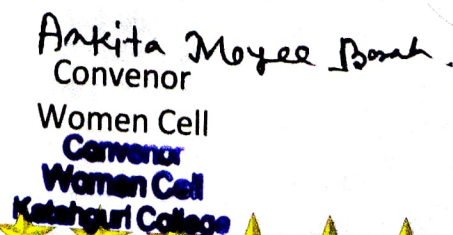 Ankita Moyee Borah.
Convenor
Women Cell
Convenor
Women Cell
Katahguri College